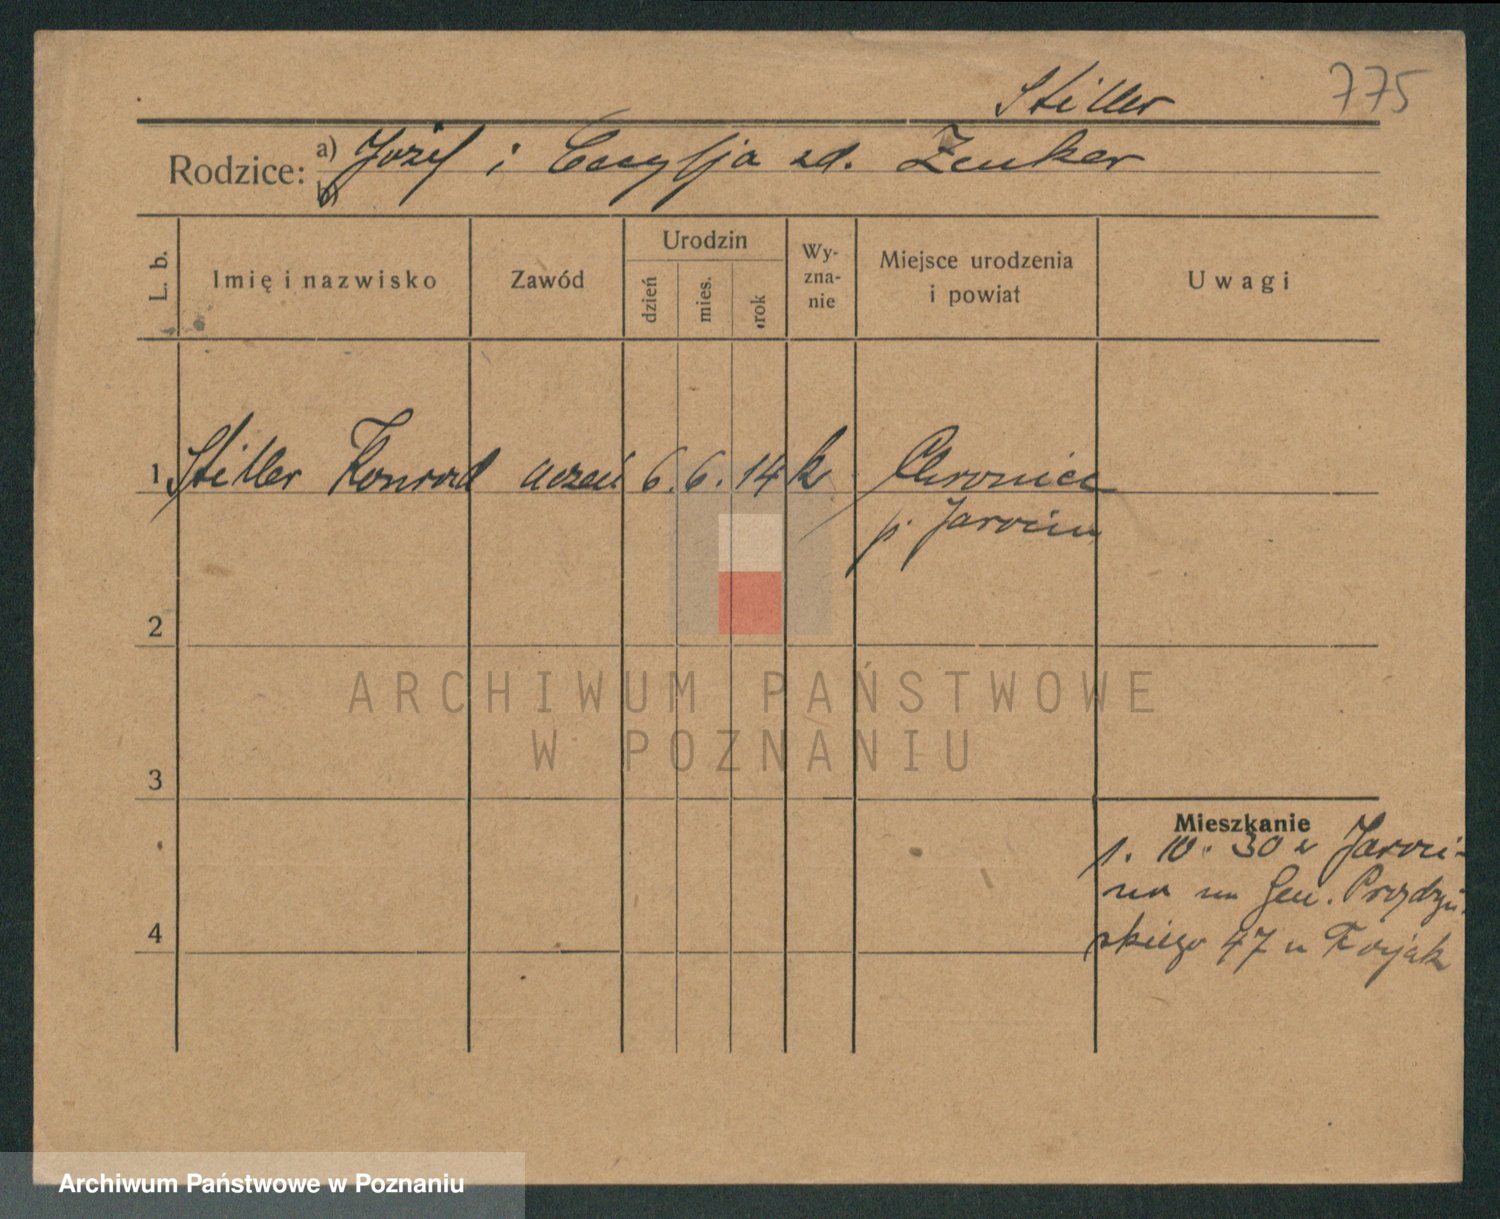 775
Stiller
Rodzice: a) Józef i Cecylja zd. Zenker
b)
L. b.
Imię i nazwisko
Zawód
Urodzin
dzień
mies.
rok
Wy-
zna-
nie
Miejsce urodzenia
i powiat
Uwagi
1 Stiller Konrad uczeń 6. 6. 14 k
p. Jarocin
2
3
4
Mieszkanie
1. 10. 30 z Jaroci-
na Gen. Prądzyń-
skiego 47 u
ARCHIWUM PAŃSTWOWE
W POZNANIU
Archiwum Państwowe w Poznaniu